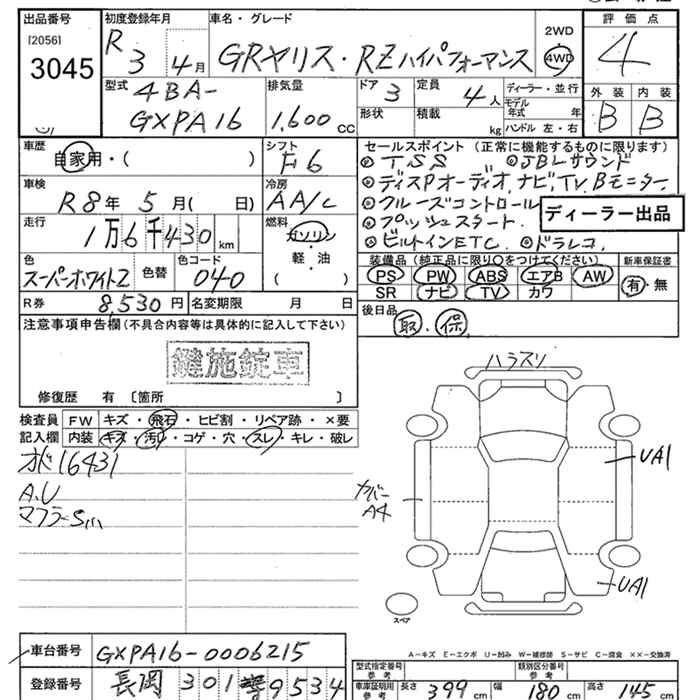 出品番号 初度登録年月 車名・グレード 評価点
[2056] 3045
R 3 4月
GRヤリス・RZハイパフォーマンス
2WD
4WD
4
型式 4BA-
GXPA16
排気量 1,600 cc
ドア 3 定員 4人
形状 積載 kg
ディーラー・並行
モデル年式 年
ハンドル 左・右
外装 内装
B B
車歴 自家用・( )
シフト F6
車検 R8年 5月( 日)
冷房 AA/C
走行 1万6千430km
燃料 ガソリン・軽・油
( )
色 スーパーホワイト2 色替 色コード 040
R券 8,530円 名変期限 月 日
セールスポイント (正常に機能するものに限ります)
◎TSS ◎JBLサウンド
◎ディスPオーディオ,ナビ,TV,Bモニター
◎クルーズコントロール
◎プッシュスタート.
◎ビルトインETC ◎ドラレコ.
ディーラー出品
装備品(純正品に限り○をつけてください) 新車保証書
PS PW ABS エアB AW 有・無
SR ナビ TV カワ
後日品
取・保
注意事項申告欄(不具合内容等は具体的に記入して下さい)
鍵施錠車
修復歴 有〔箇所 〕
検査員記入欄
FW キズ・飛石・ヒビ割・リペア跡・×要
内装 キズ・汚れ・コゲ・穴・スレ・キレ・破レ
オド16431
A.U
マフラーSm
ハラスリ
UA1
カバーA4
UA1
スペア
A-キズ E-エクボ U-凹み W-補修跡 S-サビ C-腐食 ××-交換済
車台番号 GXPA16-0006215
登録番号 長岡 301 9534
型式指定番号参考 類別区分番号参考
車庫証明用参考 長さ 399cm 幅 180cm 高さ 145cm